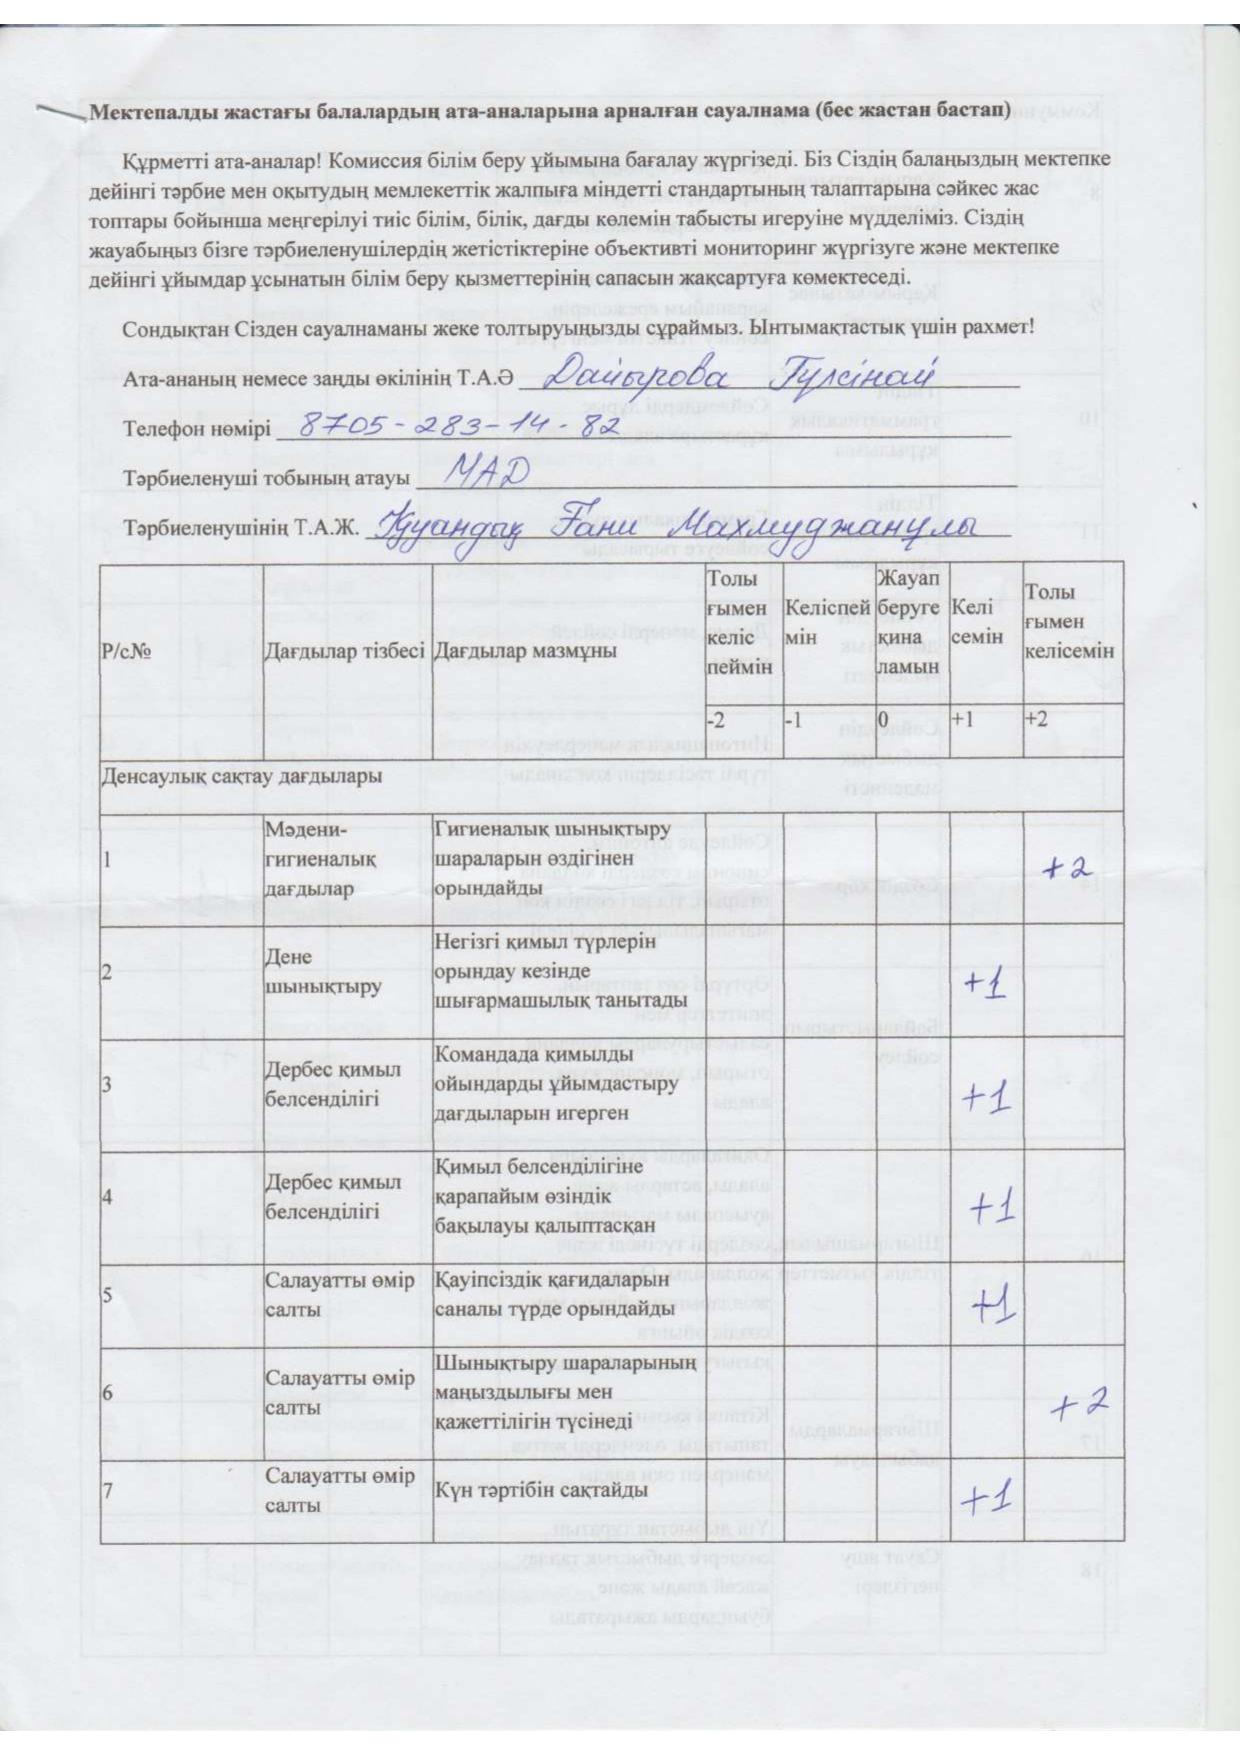 Мектепалды жастағы балалардың ата-аналарына арналған сауалнама (бес жастан бастап)
Құрметті ата-аналар! Комиссия білім беру ұйымына бағалау жүргізеді. Біз Сіздің балаңыздың мектепке
дейінгі тәрбие мен оқытудың мемлекеттік жалпыға міндетті стандартының талаптарына сәйкес жас
топтары бойынша меңгерілуі тиіс білім, білік, дағды көлемін табысты игеруіне мүдделіміз. Сіздің
жауабыңыз бізге тәрбиеленушілердің жетістіктеріне объективті мониторинг жүргізуге және мектепке
дейінгі ұйымдар ұсынатын білім беру қызметтерінің сапасын жақсартуға көмектеседі.
Сондықтан Сізден сауалнаманы жеке толтыруыңызды сұраймыз. Ынтымақтастық үшін рахмет!
Ата-ананың немесе заңды өкілінің Т.А.Ә Дайырова Гүлсінай
Телефон нөмірі 8705-283-14-82
Тәрбиеленуші тобының атауы МАД
Тәрбиеленушінің Т.А.Ж. Қуандық Ғани Махмуджанұлы
Р/с№ Дағдылар тізбесі Дағдылар мазмұны
Толы
ғымен
келіс
пеймін
Келіспей
мін
Жауап
беруге
қина
ламын
Келі
семін
Толы
ғымен
келісемін
-2 -1 0 +1 +2
Денсаулық сақтау дағдылары
1
Мәдени-
гигиеналық
дағдылар
Гигиеналық шынықтыру
шараларын өздігінен
орындайды
+2
2
Дене
шынықтыру
Негізгі қимыл түрлерін
орындау кезінде
шығармашылық танытады
+1
3
Дербес қимыл
белсенділігі
Командада қимылды
ойындарды ұйымдастыру
дағдыларын игерген
+1
4
Дербес қимыл
белсенділігі
Қимыл белсенділігіне
қарапайым өзіндік
бақылауы қалыптасқан
+1
5
Салауатты өмір
салты
Қауіпсіздік қағидаларын
саналы түрде орындайды
+1
6
Салауатты өмір
салты
Шынықтыру шараларының
маңыздылығы мен
қажеттілігін түсінеді
+2
7
Салауатты өмір
салты
Күн тәртібін сақтайды
+1